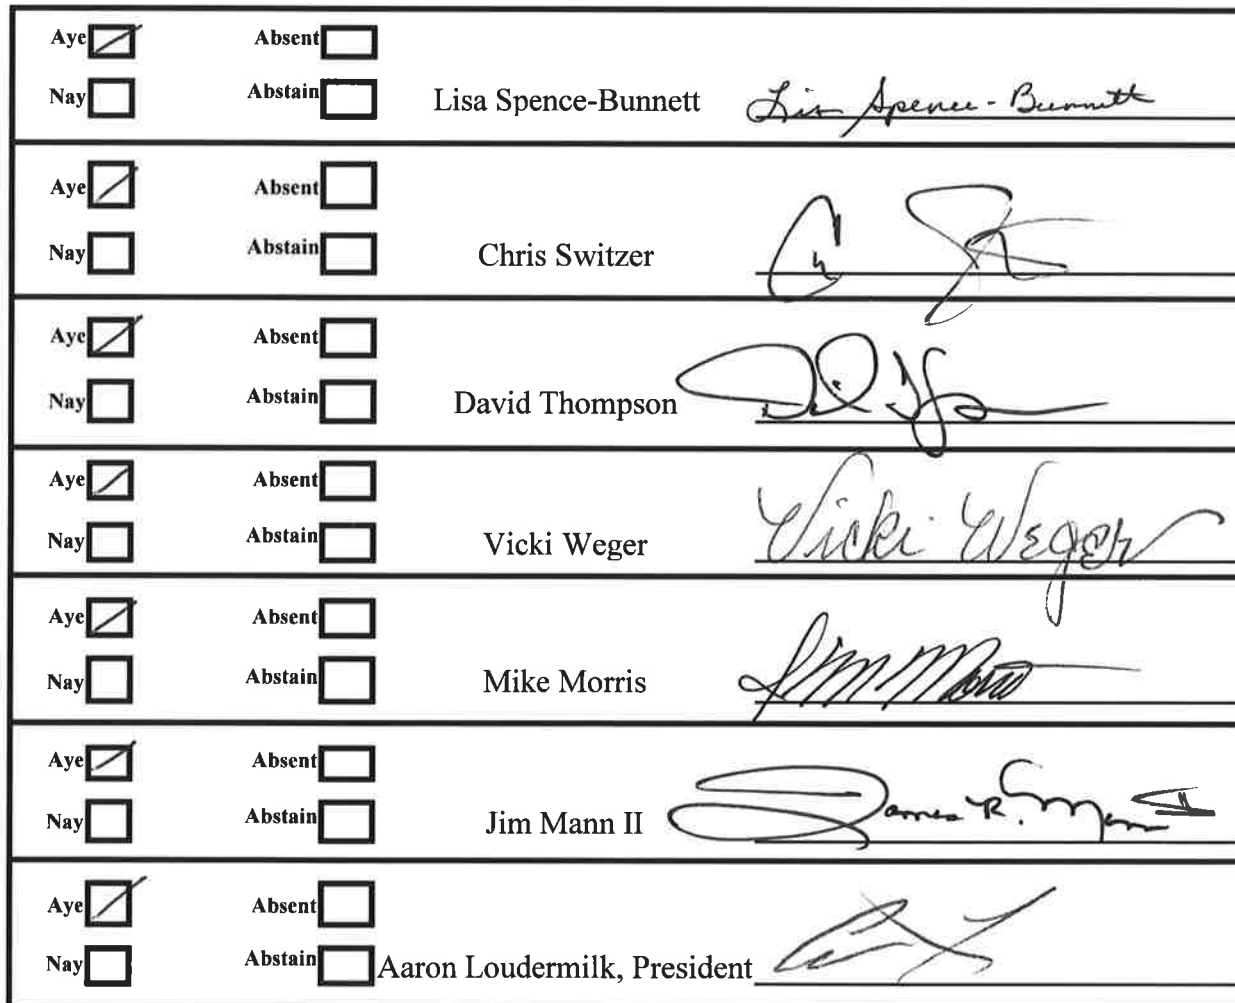 Aye Absent
Nay Abstain Lisa Spence-Bunnett Lisa Spence-Bunnett
Aye Absent
Nay Abstain Chris Switzer
Aye Absent
Nay Abstain David Thompson
Aye Absent
Nay Abstain Vicki Weger Vicki Weger
Aye Absent
Nay Abstain Mike Morris
Aye Absent
Nay Abstain Jim Mann II James R. Mann II
Aye Absent
Nay Abstain Aaron Loudermilk, President